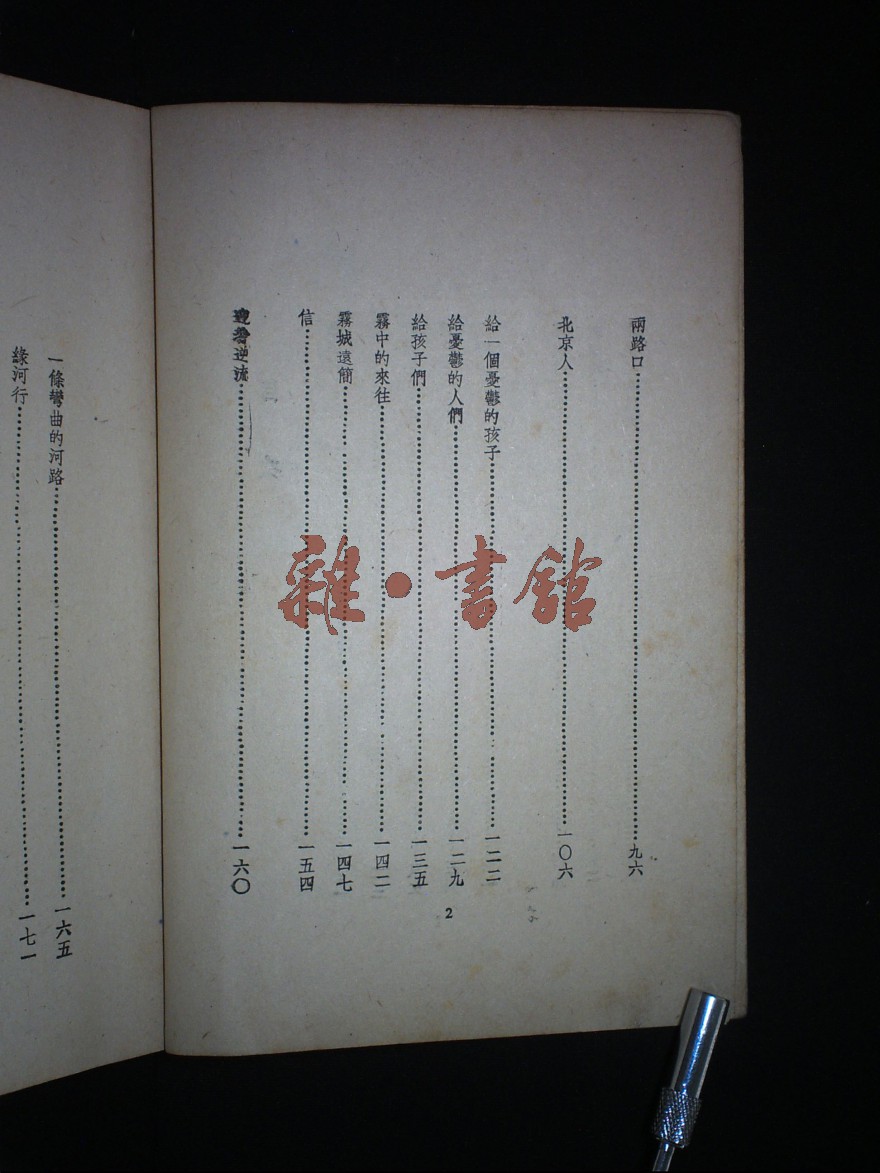 兩路口……九六
北京人……一〇六
給一個憂鬱的孩子……一二二
給憂鬱的人們……一二九
給孩子們……一三五
霧中的來往……一四二
霧城遠簡……一四七
信……一五四
迎着逆流……一六〇
2
一條彎曲的河路……一六五
綠河行……一七一
雜·書館